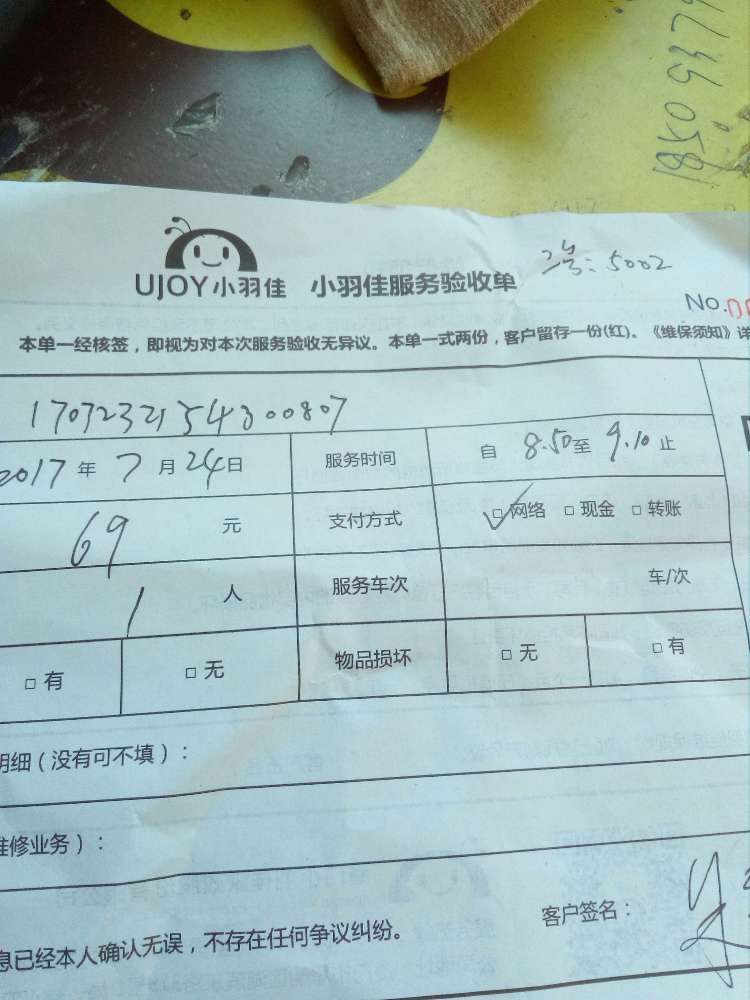 UJOY小羽佳 小羽佳服务验收单 号:5002
No.
本单一经核签，即视为对本次服务验收无异议。本单一式两份，客户留存一份(红)。《维保须知》详
1707232154300807
2017年7月24日 服务时间 自 8.50至 9.10止
69 元 支付方式 ☑网络 □现金 □转账
1 人 服务车次 车/次
□有 □无 物品损坏 □无 □有
明细（没有可不填）：
维修业务）：
客户签名：
息已经本人确认无误，不存在任何争议纠纷。